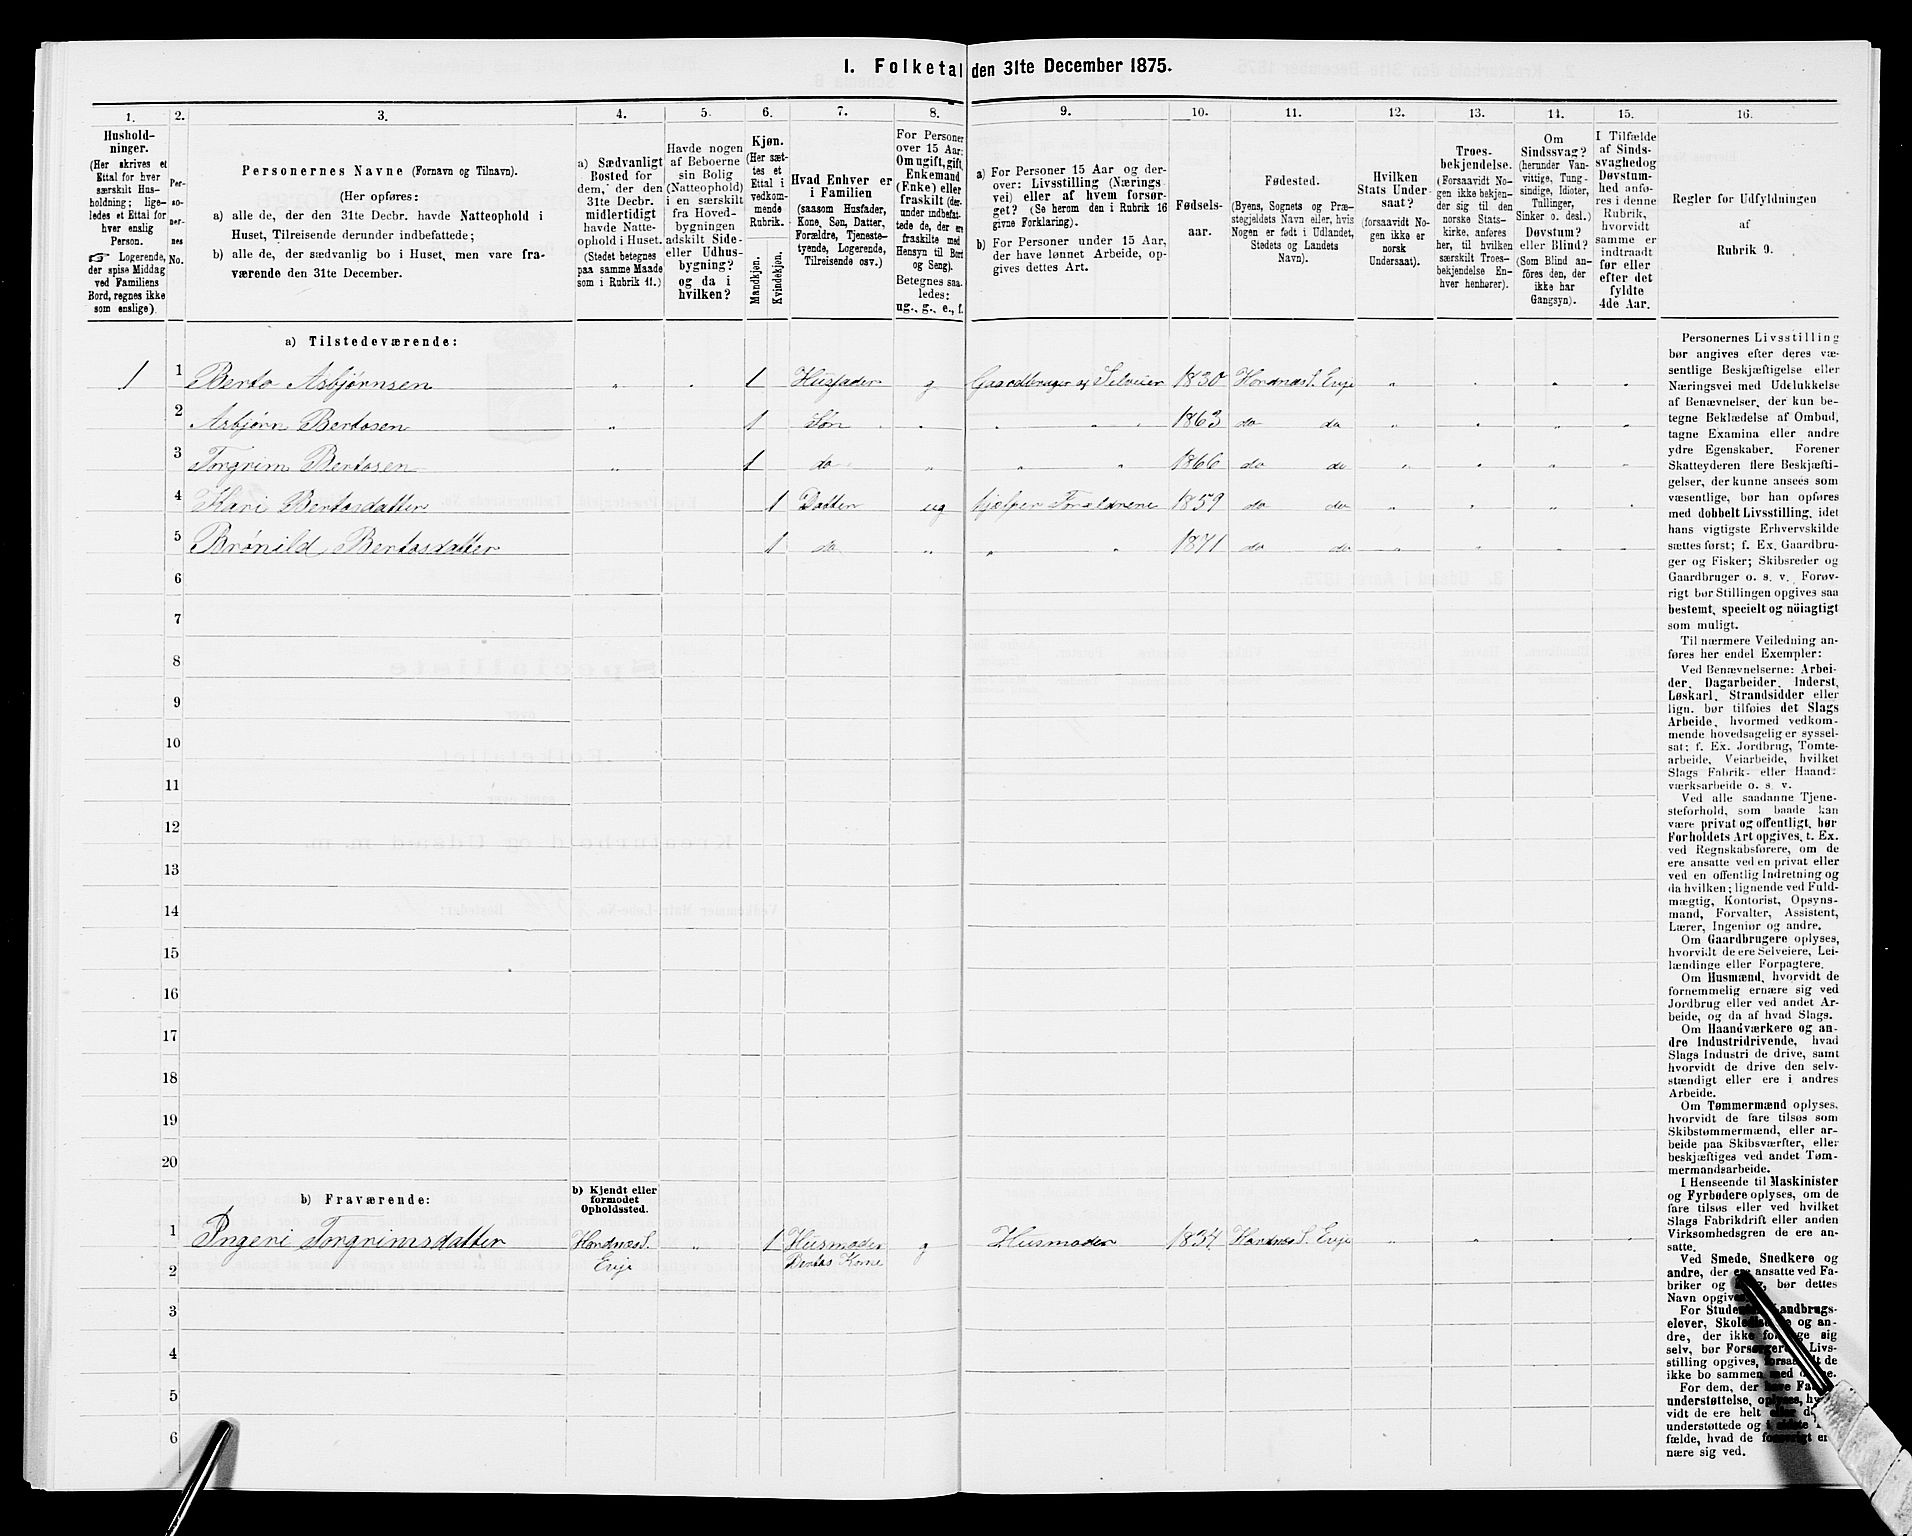 I. Folketal den 31te December 1875.
1. 2. 3. 4. 5. 6. 7. 8. 9. 10. 11. 12. 13. 14. 15. 16.
Hushold-
ninger.
(Her skrives et
Ettal for hver
særskilt Hus-
holdning; lige-
ledes et Ettal for
hver enslig
Person.
☞ Logerende,
der spise Middag
ved Familiens
Bord, regnes ikke
som enslige).
Per-
so-
ner-
nes
No.
Personernes Navne (Fornavn og Tilnavn).
(Her opføres:
a) alle de, der den 31te Decbr. havde Natteophold i
Huset, Tilreisende derunder indbefattede;
b) alle de, der sædvanlig bo i Huset, men vare fra-
værende den 31te December.
a) Sædvanligt
Bosted for
dem, der den
31te Decbr.
midlertidigt
havde Natte-
ophold i Huset.
(Stedet betegnes
paa samme Maade
som i Rubrik 11.)
Havde nogen
af Beboerne
sin Bolig
(Natteophold)
i en særskilt
fra Hoved-
bygningen
adskilt Side-
eller Udhus-
bygning?
og da i
hvilken?
Kjøn.
(Her sæt-
tes et
Ettal i
vedkom-
mende
Rubrik.
Mandkjøn.
Kvindekjøn.
Hvad Enhver er
i Familien
(saasom Husfader,
Kone, Søn, Datter,
Forældre, Tjeneste-
tyende, Logerende,
Tilreisende osv.)
For Personer
over 15 Aar:
Om ugift, gift,
Enkemand
(Enke) eller
fraskilt (der-
under indbefat-
tede de, der ere
fraskilte med
Hensyn til Bord
og Seng).
Betegnes saa-
ledes:
ug., g., e., f.
a) For Personer 15 Aar og der-
over: Livsstilling (Nærings-
vei) eller af hvem forsør-
get? (Se herom den i Rubrik 16
givne Forklaring).
b) For Personer under 15 Aar,
der have lønnet Arbeide, op-
gives dettes Art.
Fødsels-
aar.
Fødested.
(Byens, Sognets og Præ-
stegjeldets Navn eller, hvis
Nogen er født i Udlandet,
Stedets og Landets
Navn).
Hvilken
Stats Under-
saat?
(forsaavidt No-
gen ikke er
norsk
Undersaat).
Troes-
bekjendelse.
(Forsaavidt No-
gen ikke bekjen-
der sig til den
norske Stats-
kirke, anføres
her, til hvilken
særskilt Troes-
bekjendelse En-
hver henhører).
Om
Sindssvag?
(herunder Van-
vittige, Tung-
sindige, Idioter,
Tullinger,
Sinker o. desl.)
Døvstum?
eller Blind?
(Som Blind an-
føres den, der
ikke har
Gangsyn).
I Tilfælde
af Sinds-
svaghedog
Døvstum-
hed anfø-
res i denne
Rubrik,
hvorvidt
samme er
indtraadt
før eller
efter det
fyldte
4de Aar.
Regler for Udfyldningen
af
Rubrik 9.
a) Tilstedeværende:
1 1 Berto Asbjørnsen „ „ 1 Husfader g Gaardbruger og Selveier 1830 Hordnæs S. Evje „ „ „ „
2 Asbjørn Bertosen „ 1 Søn „ „ „ „ „ 1863 do do „ „ „ „
3 Torgrim Bertosen „ 1 do „ „ „ 1866 do do „ „ „ „
4 Kari Bertosdatter 1 Datter ug hjælper Forældrene 1859 do do „ „ „ „
5 Brønild Bertosdatter 1 do „ „ „ 1871 do do „ „ „ „
6
7
8
9
10
11
12
13
14
15
16
17
18
19
20
b) Fraværende:
b) Kjendt eller
formodet
Opholdssted.
1 Ingeri Torgrimsdatter Hordnæs S. „ 1 Husmoder g Husmoder 1834 Hordnæs S. Evje „ „ „ „
2 Evje Bertos Kone
3
4
5
6
Personernes Livsstilling
bør angives efter deres væ-
sentlige Beskjæftigelse eller
Næringsvei med Udelukkelse
af Benævnelser, der kun be-
tegne Beklædelse af Ombud,
tagne Examina eller andre
ydre Egenskaber. Forener
Skatteyderen flere Beskjæfti-
gelser, der kunne ansees som
væsentlige, bør han opføres
med dobbelt Livsstilling, idet
hans vigtigste Erhvervskilde
sættes først; f. Ex. Gaardbru-
ger og Fisker; Skibsreder og
Gaardbruger o. s. v. Forøv-
rigt bør Stillingen opgives saa
bestemt, specielt og nöiagtigt
som muligt.
Til nærmere Veiledning an-
føres her endel Exempler:
Ved Benævnelserne: Arbei-
der, Dagarbeider, Inderst,
Løskarl, Strandsidder eller
lign. bør tilføies det Slags
Arbeide, hvormed vedkom-
mende hovedsagelig er syssel-
sat; f. Ex. Jordbrug, Tomte-
arbeide, Veiarbeide, hvilket
Slags Fabrik- eller Haand-
værksarbeide o. s. v.
Ved alle saadanne Tjene-
steforhold, som baade kan
være privat og offentligt, bør
Forholdets Art opgives, t. Ex.
ved Regnskabsførere, om de
ere ansatte ved en privat eller
ved en offentlig Indretning og
da hvilken; lignende ved Fuld-
mægtig, Kontorist, Opsyns-
mand, Forvalter, Assistent,
Lærer, Ingeniør og andre.
Om Gaardbrugere oplyses,
hvorvidt de ere Selveiere, Lei-
lændinge eller Forpagtere.
Om Husmænd, hvorvidt de
fornemmelig ernære sig ved
Jordbrug eller ved andet Ar-
beide, og da af hvad Slags.
Om Haandværkere og an-
dre Industridrivende, hvad
Slags Industri de drive, samt
hvorvidt de drive den selv-
stændigt eller ere i andres
Arbeide.
Om Tømmermænd oplyses,
hvorvidt de fare tilsøs som
Skibstømmermænd, eller ar-
beide paa Skibsværfter, eller
beskjæftiges ved andet Tøm-
mermandsarbeide.
I Henseende til Maskinister
og Fyrbødere oplyses, om de
fare tilsøs eller ved hvilket
Slags Fabrikdrift eller anden
Virksomhedsgren de ere an-
satte.
Ved Smede, Snedkere og
andre, der ere ansatte ved Fa-
briker og bør dettes
Navn opgives
For Landbrugs-
elever, og an-
dre, der ikke sig
selv, bør Livs-
stilling opgives, de
ikke bo sammen med
For dem, der have
understøttelse, oplyses,
vidt de ere helt
understøttede og i
fælde, hvad de
nære sig ved.